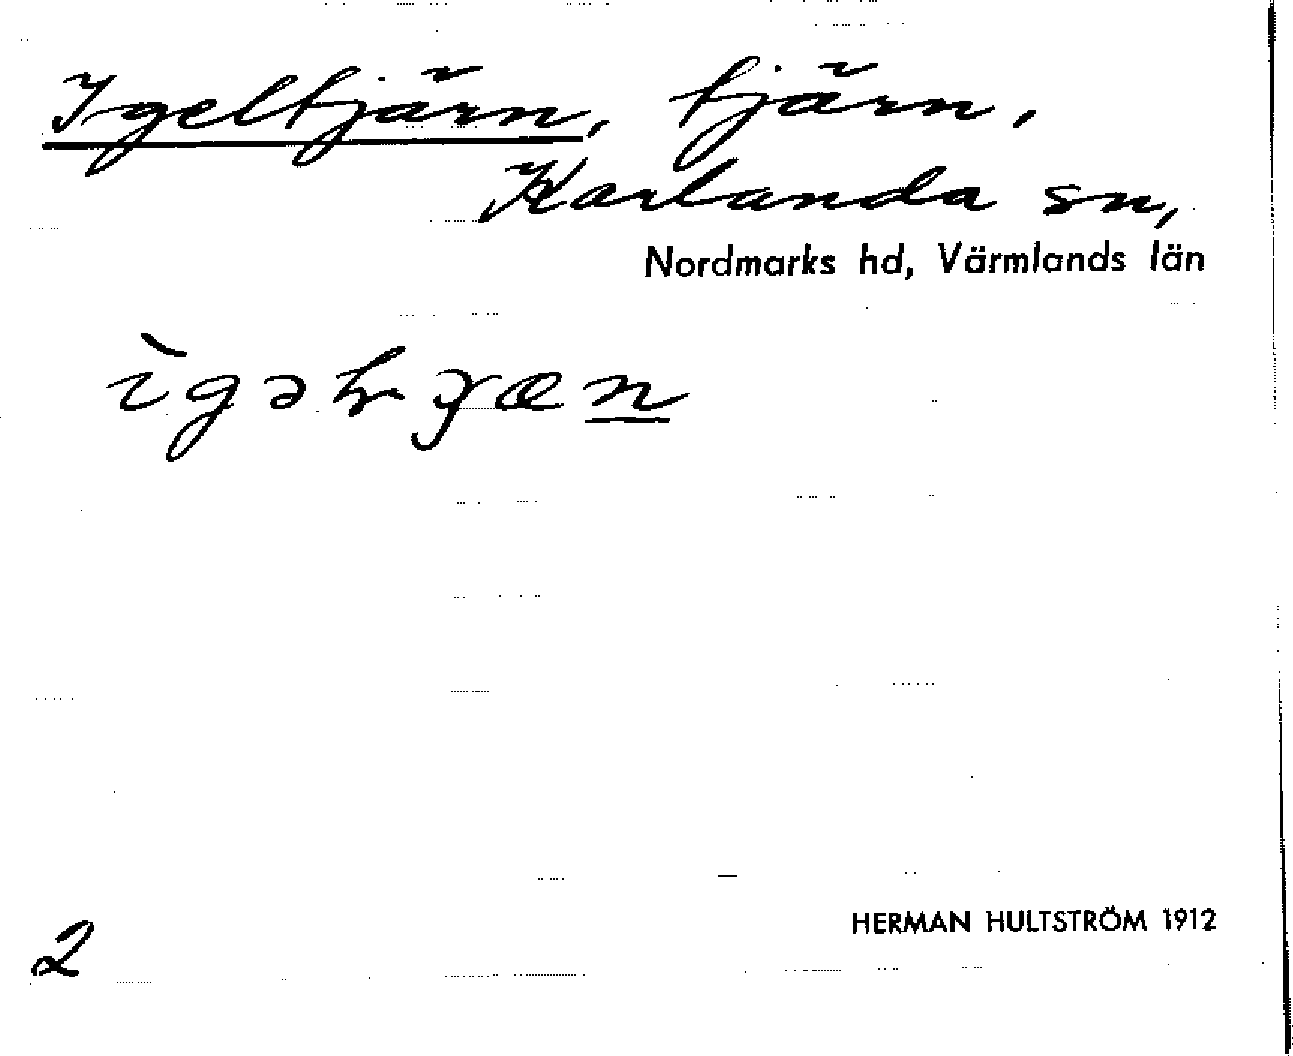 Igeltjärn, tjärn,
Karlanda sn,
Nordmarks hd, Värmlands län
HERMAN HULTSTRÖM 1912
2